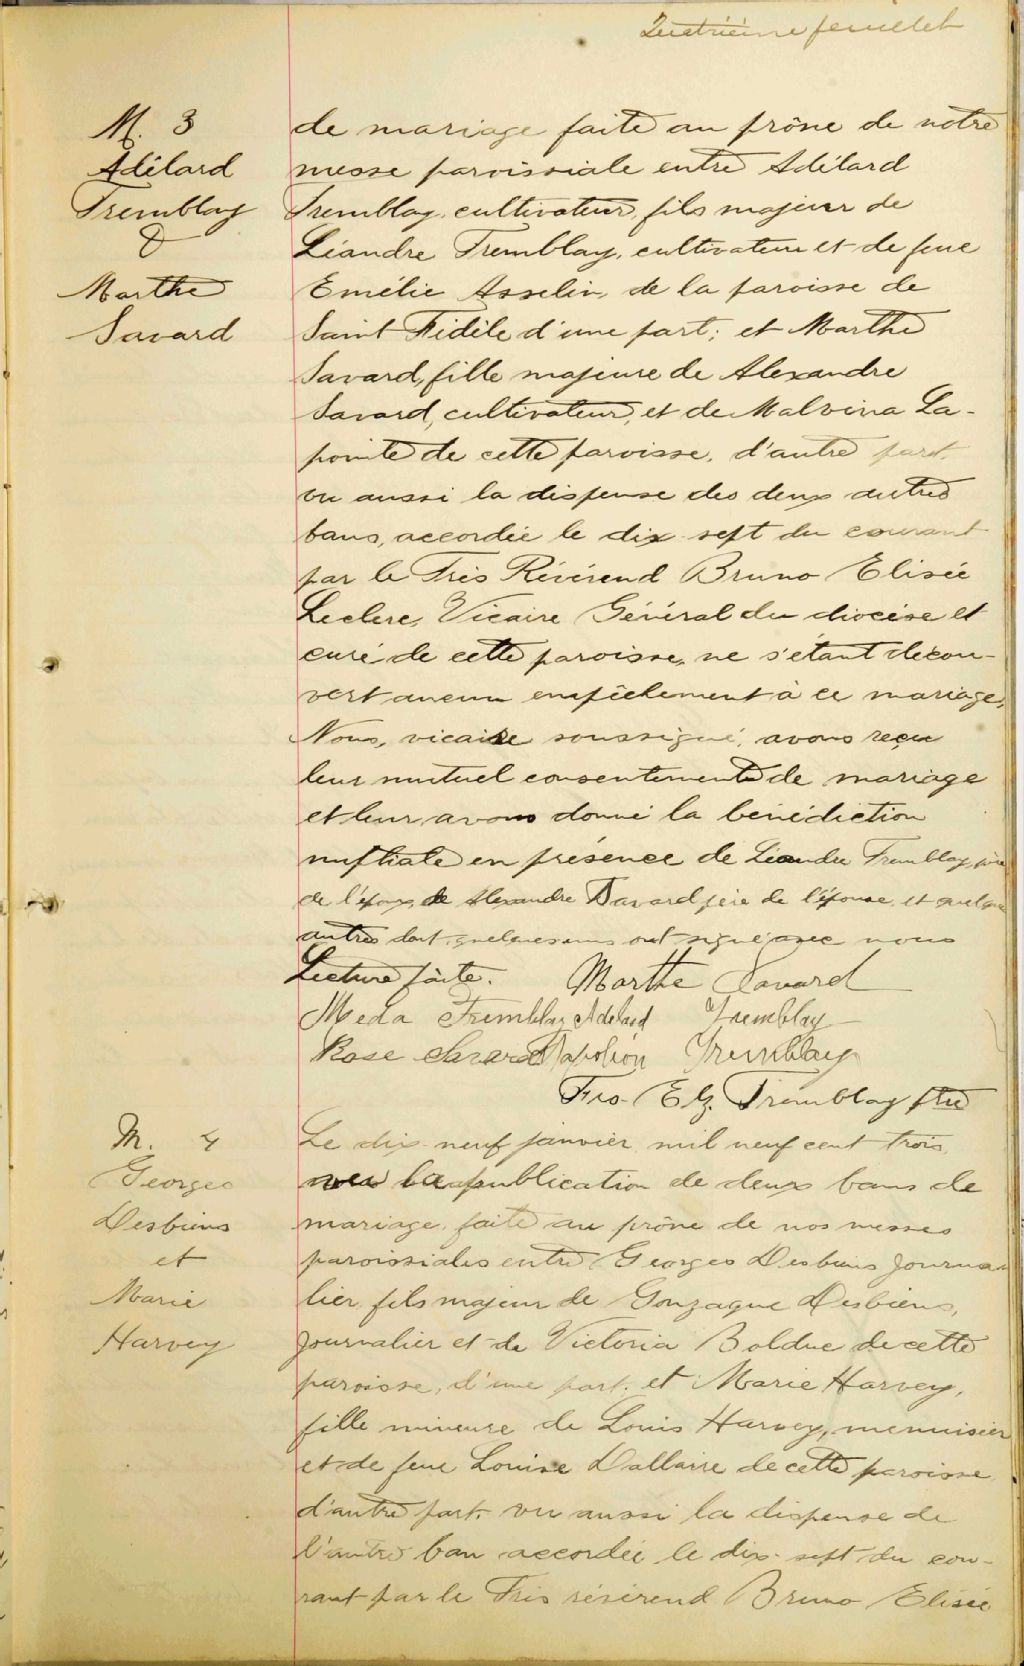 Quatrième feuillet
M. 3
Adélard
Tremblay
&
Marthe
Savard
de mariage faite au prône de notre
messe paroissiale entre Adélard
Tremblay, cultivateur, fils majeur de
Léandre Tremblay, cultivateur et de feue
Emélie Asselin, de la paroisse de
Saint Fidèle d'une part; et Marthe
Savard, fille majeure de Alexandre
Savard, cultivateur, et de Malvina La-
pointe de cette paroisse, d'autre part,
vu aussi la dispense des deux autres
bans, accordée le dix sept du courant
par le Très Révérend Bruno Elisée
Leclerc, Vicaire Général du diocèse et
curé de cette paroisse, ne s'étant décou-
vert aucun empêchement à ce mariage,
Nous, vicaire soussigné, avons reçu
leur mutuel consentement de mariage
et leur avons donné la bénédiction
nuptiale en présence de Léandre Tremblay, père
de l'époux, de Alexandre Savard père de l'épouse, et quelques
autres dont quelques uns ont signé avec nous
Lecture faite. Marthe Savard
Meda Tremblay Adelard Tremblay
Rose Savard Napoléon Tremblay
Frs. Elz. Tremblay Ptre
M. 4
Georges
Desbiens
et
Marie
Harvey
Le dix-neuf janvier mil neuf cent trois,
vu la publication de deux bans de
mariage, faite au prône de nos messes
paroissiales entre Georges Desbiens journa
lier, fils majeur de Gonzague Desbiens,
journalier et de Victoria Bolduc de cette
paroisse, d'une part; et Marie Harvey,
fille mineure de Louis Harvey, menuisier
et de feue Louise Dallaire de cette paroisse
d'autre part. vu aussi la dispense de
l'autre ban accordée le dix-sept du cou-
rant par le Très révérend Bruno Elisée